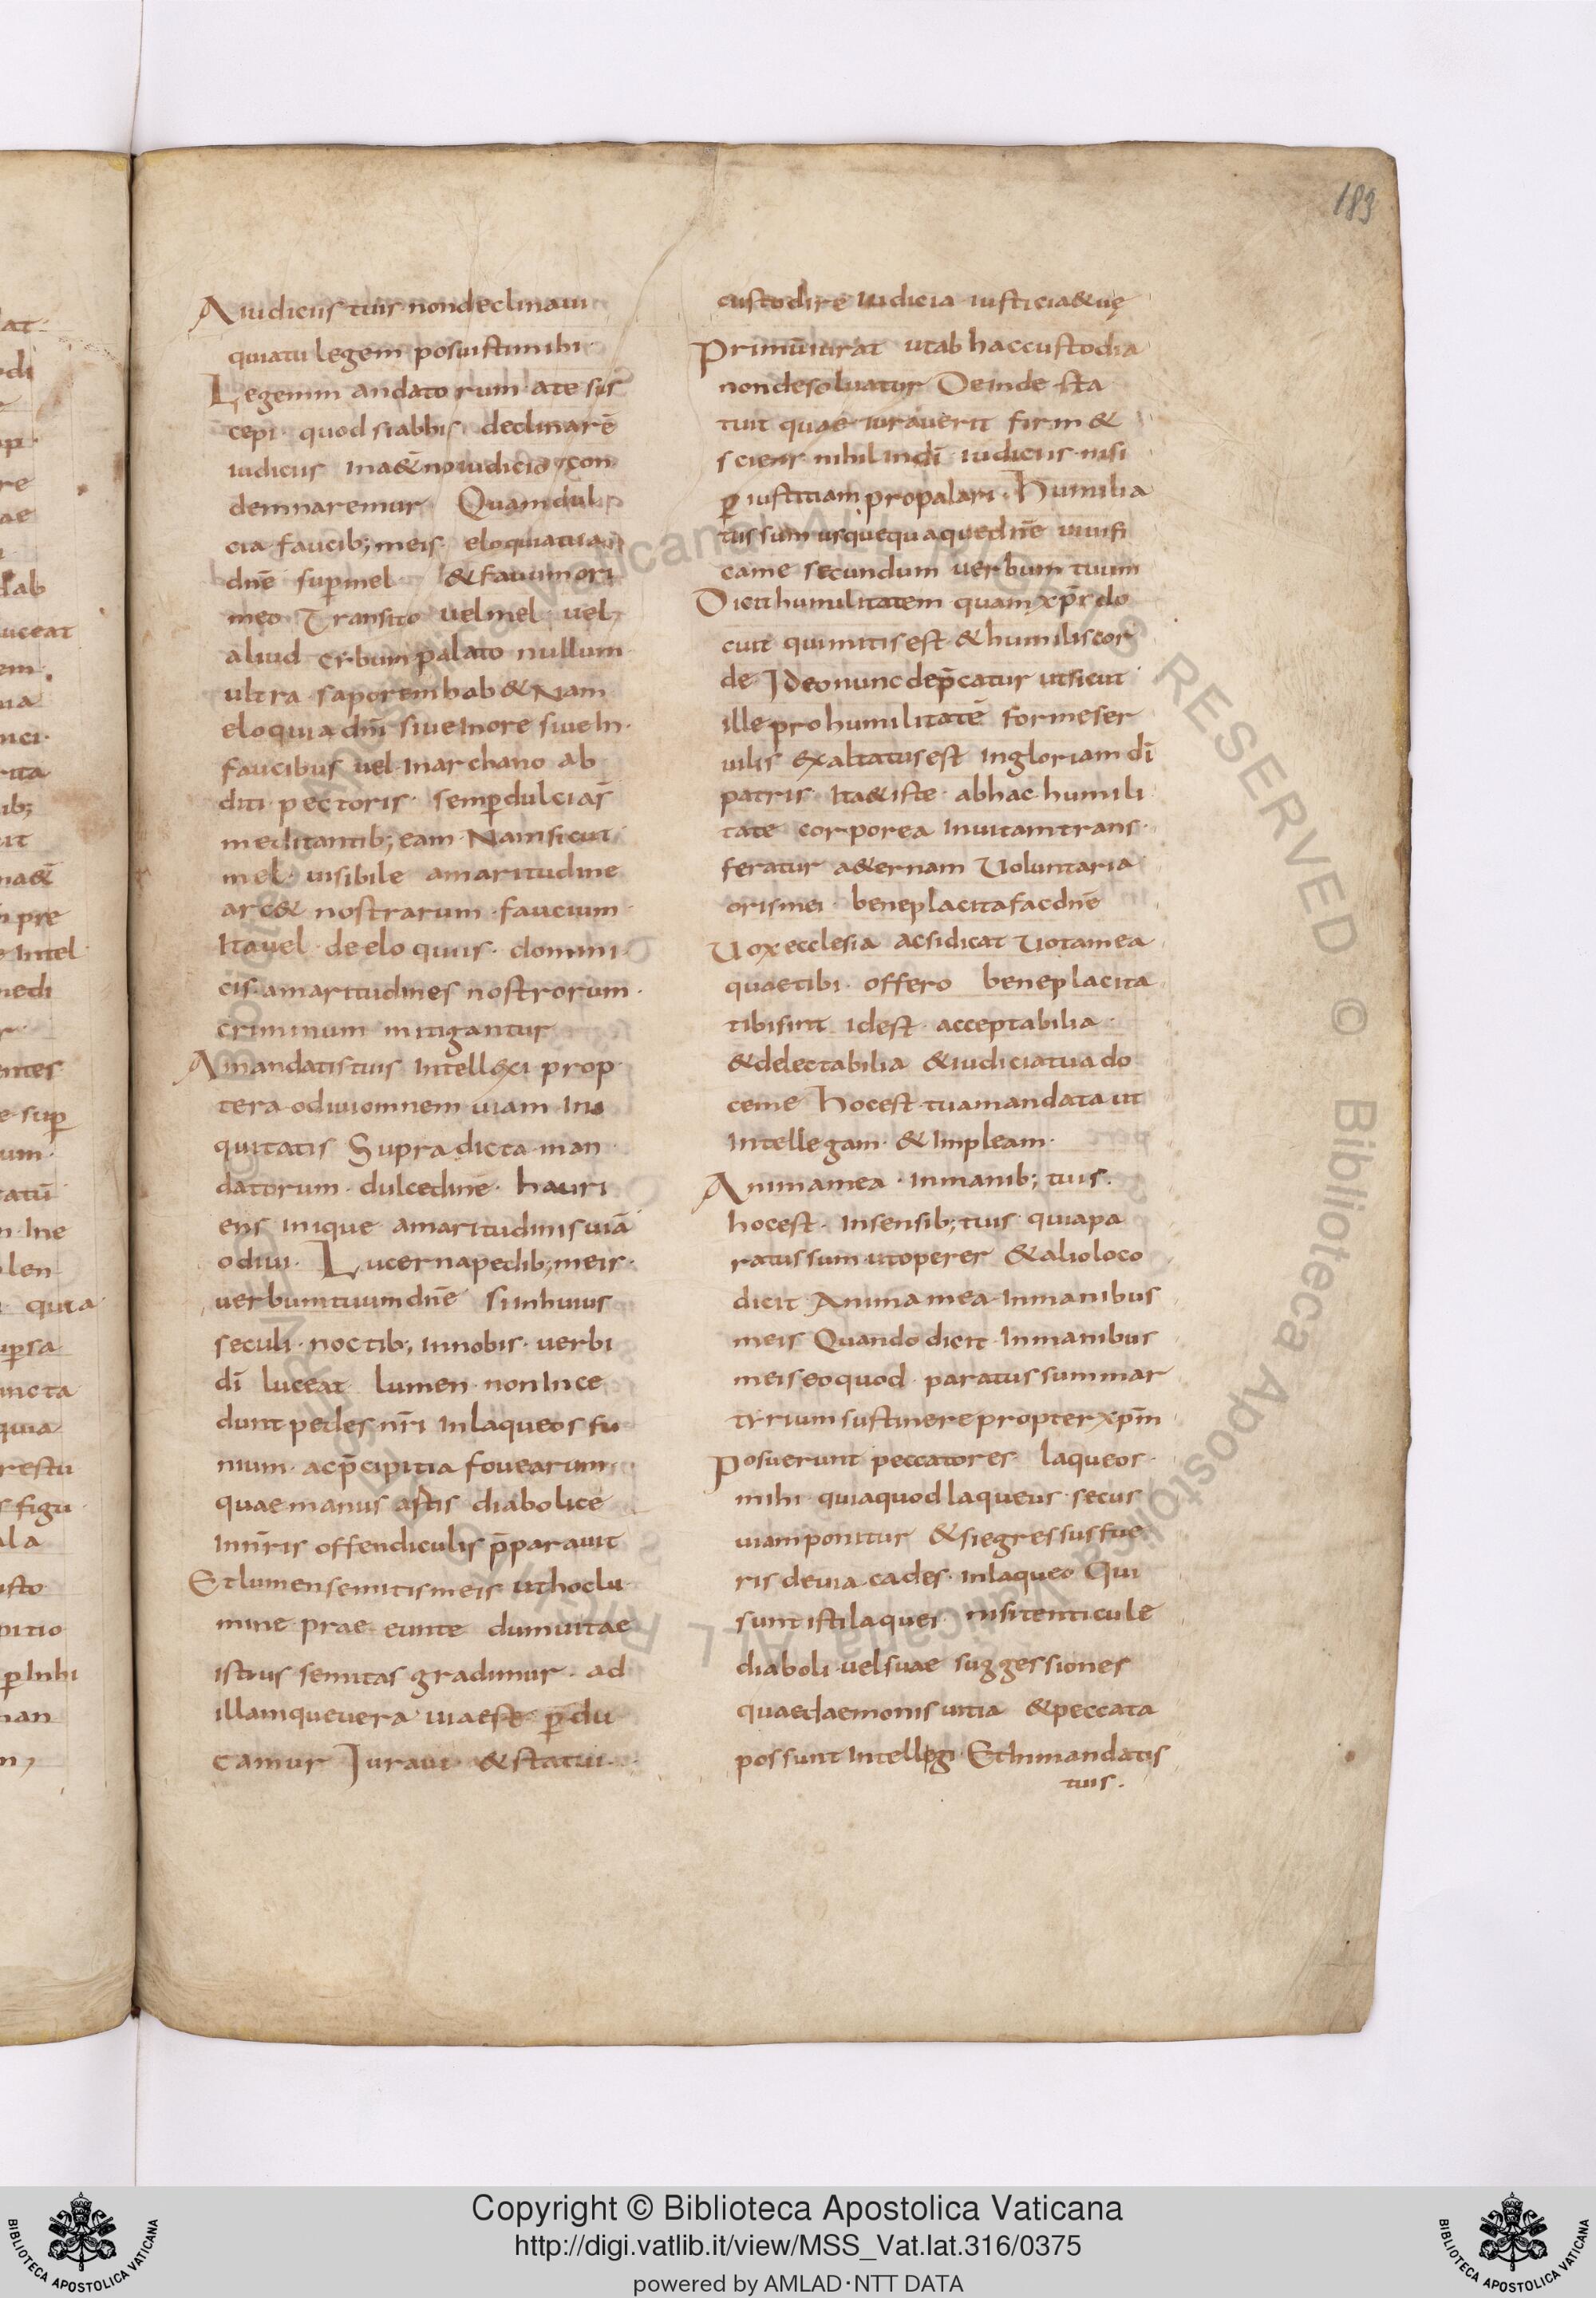 183
A iudiciis tuis non declinavi
quia tu legem posuisti mihi·
Legem m andato rum· a te sus
cepi· quod si ab his· declinarē
iudiciis in a&ērno iudicio con
demnaremur· Quam dul
cia faucib; meis· eloquia tua
dnē sup mel & favum ori
meo Transito vel mel vel
aliud cibum palato nullum
ultra· saporem hab& Nam
eloquia dni sive In ore sive In·
faucibus vel In archano ab
diti pectoris· semp dulcias
meditantib; eam· Nam sicut
mel· visibile amaritudine
arc& nostrarum· faucium·
Ita vel· de eloquiis· domini·
cis· amaritudines nostrorum·
criminum mitigantur
A mandatis tuis Intellexi prop
tera odivi omnem viam Ini
quitatis Supra dicta man
datorum· dulcedine· hauri
ens inique amaritudinis viā
odivi· Lucerna pedib; meis·
verbum tuum dnē Si In huius
seculi· noctib; in nobis· verbi
dī luceat lumen· non Ince
dunt pedes nri In laqueos fu
nium· ac pcipitia fovearum
quae manus astis diabolice
In nris offendiculis pparavit
Et lumen semitis meis ut hoc lu
mine prae eunte dum vitae
istius semitas gradimur· ad
illam que vera via est· p du
camur Iuravi· & statui·
custodire Iudicia iusticia& uę
Primū iurat ut ab hac custodia
non desolvatur Deinde sta
tuit quae iuraverit firm&
sciens nihil in dī iudiciis nisi
p iustitiam propalari· Humilia
tus sum usquequaque dnē vivifi
ca me secundum verbum tuum
Dicit humilitatem quam xps do
cuit qui mitis est & humilis cor
de Ideo nunc depcatur ut sicut
ille pro humilitatē forme ser
vilis exaltatus est In gloriam dī
patris· Ita & iste· ab hac humili
tate corporea In vitam trans·
feratur a&ernam Voluntaria
oris mei· beneplacita fac dnē
Vox ecclesia ac si dicat Vota mea
quae tibi· offero beneplacita
tibi sint idest· acceptabilia·
& delectabilia & iudicia tua do
ce me hoc est· tua mandata ut
Intellegam· & Impleam·
Anima mea· In manib; tuis·
hoc est· In sensib; tuis· quia pa
ratus sum ut operer & alio loco
dicit Anima mea In manibus
meis Quando dicit In manibus
meis eo quod paratus sum mar
tyrium sustinere propter xpm
Posuerunt peccatores· laqueos·
mihi· quia quod laqueus· secus
viam ponitur & si egressus fue
ris devia cades· in laqueo Qui
sunt isti laquei nisi tenticule
diaboli vel suae suggessiones
quae daemonis vitia & peccata
possunt Intellegi· Et In mandatis
tuis·
Copyright © Biblioteca Apostolica Vaticana
http://digi.vatlib.it/view/MSS_Vat.lat.316/0375
powered by AMLAD·NTT DATA